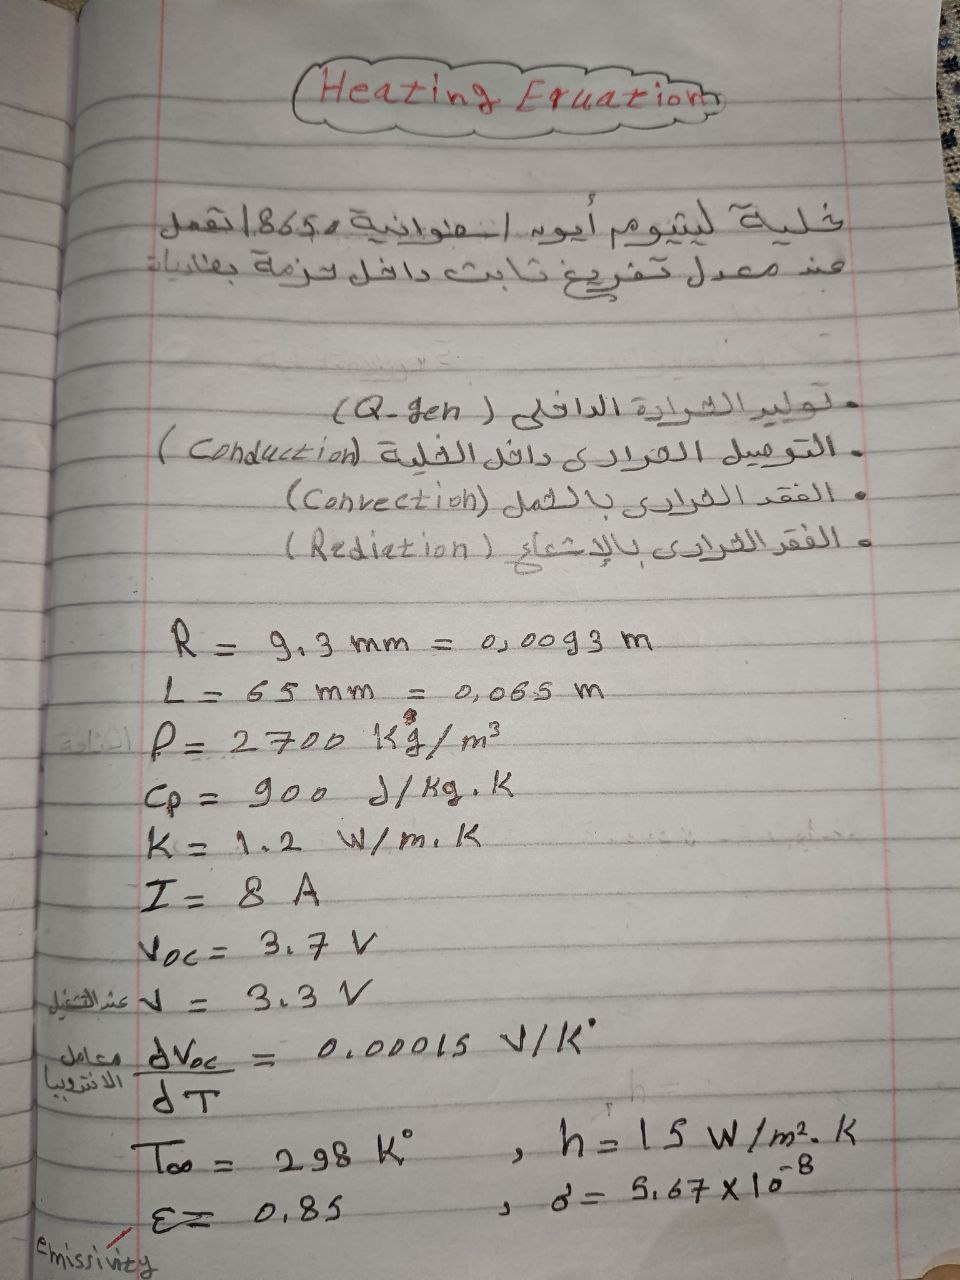 Heating Eruation
خلية ليثيوم أيون اسطوانية 18650 تعمل
عند معدل تفريغ ثابت داخل حزمة بطاريات
• توليد الحرارة الداخلى (Q-gen)
• التوصيل الحرارى داخل الخلية (Conduction)
• الفقد الحرارى بالحمل (Convection)
• الفقد الحرارى بالإشعاع (Rediation)
R = 9.3 mm = 0,0093 m
L = 65 mm = 0,065 m
ρ = 2700 Kg/m³
Cp = 900 J/Kg.K
K = 1.2 W/m.K
I = 8 A
Voc = 3.7 V
عند التشغيل V = 3.3 V
معامل الانتروبيا dVoc/dT = 0.00015 V/K°
T∞ = 298 K° , h = 15 W/m².K
ε = 0.85 , σ = 5.67 × 10⁻⁸
emissivity